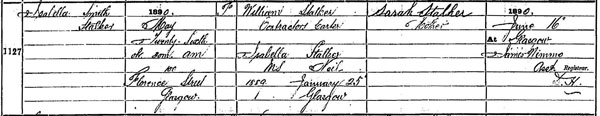 1127
Isabella Smith
Stalker
1890.
May
Twenty Sixth
Florence Street
Glasgow.
William Stalker
Contractors Carter
Isabella Stalker
M.S. Neil
1889. January 25
Glasgow
Sarah Stalker
1890.
June 16
At Glasgow
James Nimmo
Asst Registrar.